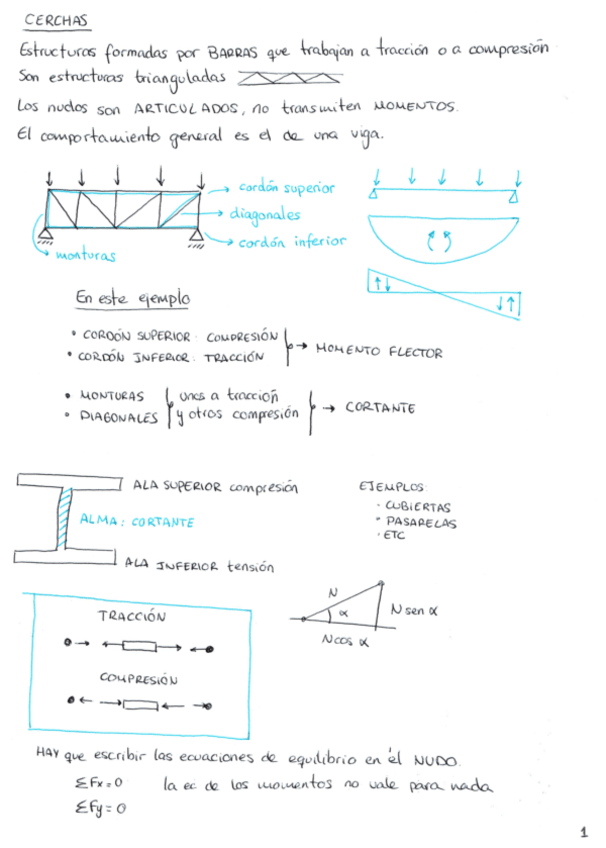 CERCHAS
Estructuras formadas por BARRAS que trabajan a tracción o a compresión
Son estructuras trianguladas
Los nudos son ARTICULADOS, no transmiten MOMENTOS.
El comportamiento general es el de una viga.
cordón superior
diagonales
cordón inferior
monturas
En este ejemplo
• CORDÓN SUPERIOR: COMPRESIÓN
• CORDÓN INFERIOR: TRACCIÓN
→ MOMENTO FLECTOR
• MONTURAS
• DIAGONALES
unos a tracción
y otros compresión
→ CORTANTE
ALA SUPERIOR compresión
ALMA: CORTANTE
ALA INFERIOR tensión
EJEMPLOS:
· CUBIERTAS
· PASARELAS
· ETC
TRACCIÓN
COMPRESIÓN
N
α
N sen α
N cos α
HAY que escribir las ecuaciones de equilibrio en el NUDO.
ΣFx=0 la ec de los momentos no vale para nada
ΣFy=0
1